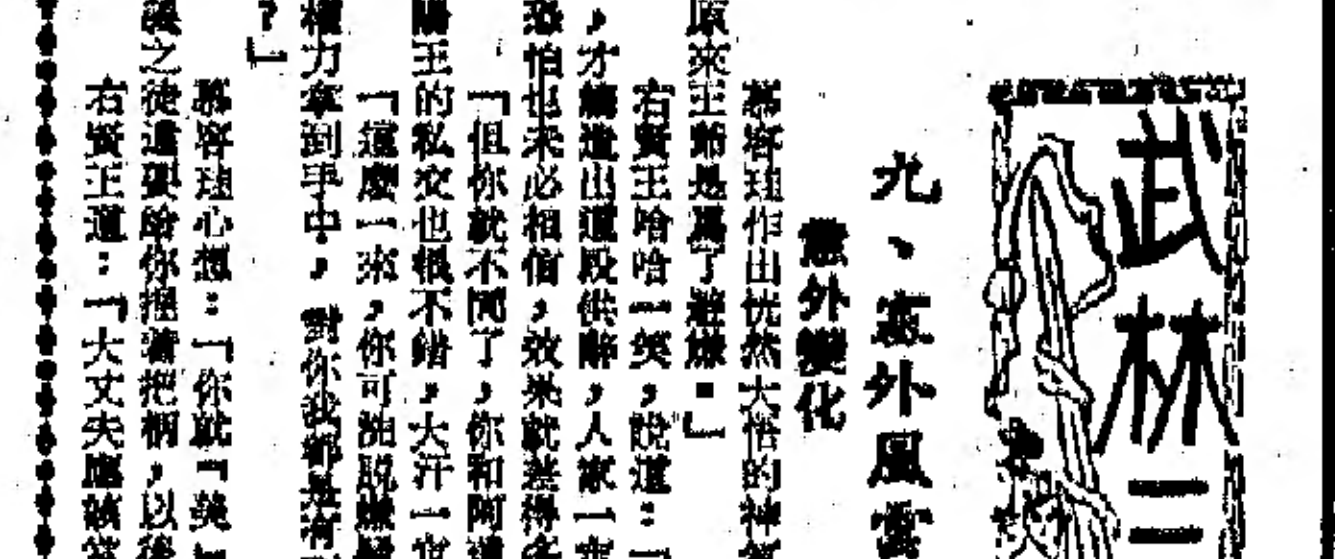 武林三
九、意外風雲
意外變化
慕容珪作出恍然大悟的神
原來王爺是爲了避嫌。」
右賢王哈哈一笑,說道:「
,才編造出這段供辭,人家一定
恐怕也未必相信,效果就差得多
「但你就不同了,你和阿
陽王的私交也很不錯,大汗一定
「這麼一來,你可洗脫嫌疑
權力拿到手中,對你我都是有
?」
慕容珪心想:「你就『美』
之徒還要給你揑着把柄,以後
右賢王道:「大丈夫應該